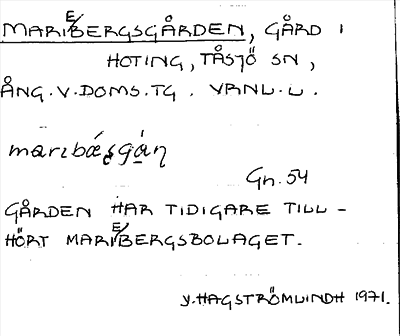 MARIE/BERGSGÅRDEN, GÅRD I
HOTING, TÅSJÖ SN,
ÅNG. V. DOMS. TG. VRNL. L.
marıbǽsgán
Gn. 54
GÅRDEN HAR TIDIGARE TILL-
HÖRT MARIE/BERGSBOLAGET.
V. HAGSTRÖMLINDH 1971.